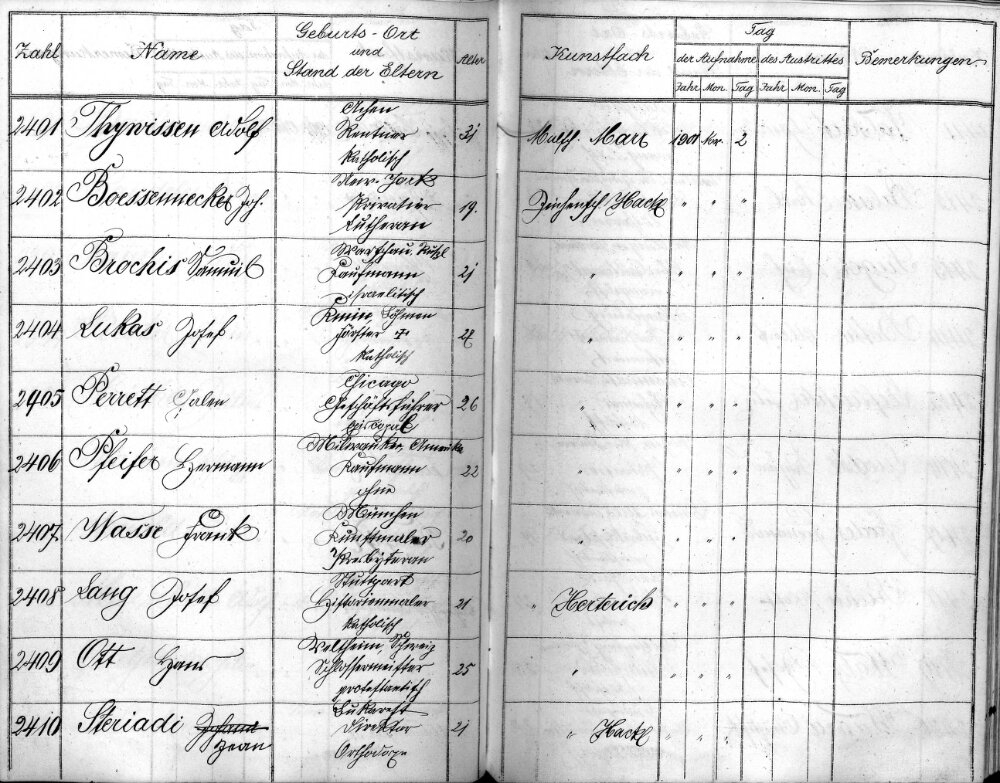 Zahl Name Geburts-Ort und Stand der Eltern Alter Kunstfach Tag der Aufnahme des Austrittes Bemerkungen.
Jahr Mon. Tag Jahr Mon. Tag
2401 Thywissen Adolf Achen
Rentner 31 Malsch. Marr 1901 Nov. 2
katholisch
2402 Boessenecker Joh. New-York
Privatier 19. Zeichensch. Hackl " " "
Lutheran
2403 Brochis Samuil Warschau, Rußl.
Kaufmann 21 " " "
israelitisch
2404 Lukas Josef Böhmen
Förster † 28 " " "
katholisch
2405 Perrett Galen Chicago
Geschäftsführer 26 " " " "
episcopal
2406 Pfeifer Hermann Milwaukee, Amerika
Kaufmann 22 " " "
ohne
2407 Wasse Frank München
Kunstmaler 20 " " "
Presbyteran
2408 Lang Josef Stuttgart
Historienmaler 21 " Herterich " " "
katholisch
2409 Ott Hans Veltheim, Schweiz
Schlossermeister 25 " " " "
protestantisch
2410 Steriadi Johann Bukarest
Jean Direktor 21 " Hackl " " "
Orthodox